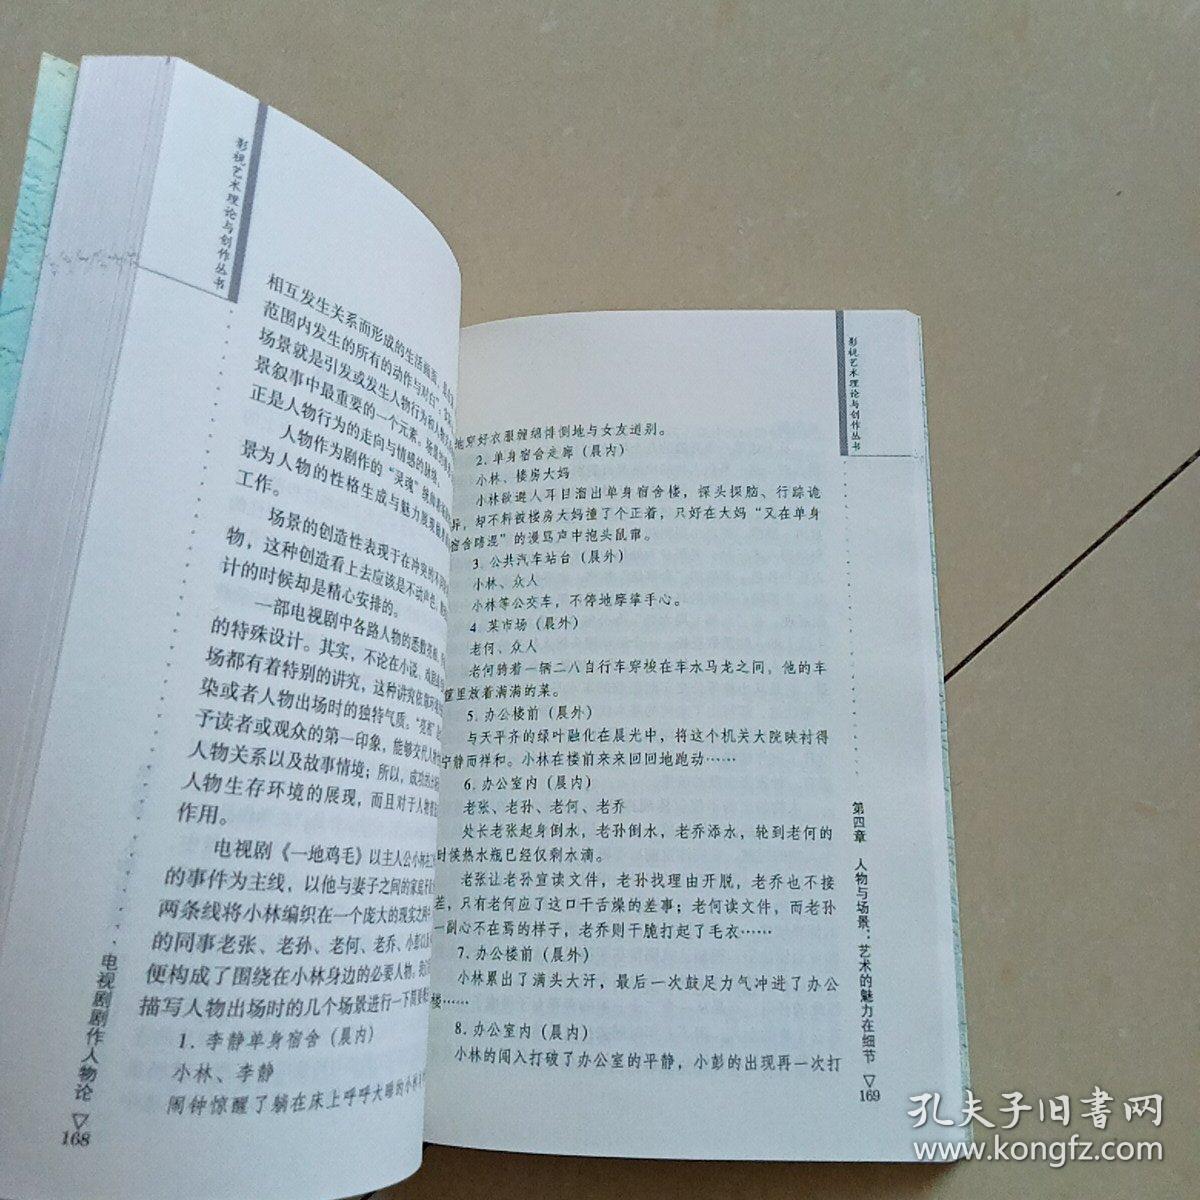 影视艺术理论与创作丛书
相互发生关系而形成的生活画面，
范围内发生的所有的动作与对白”；
场景就是引发或发生人物行为和人物
景叙事中最重要的一个元素。场景
正是人物行为的走向与情感的脉络，
人物作为剧作的“灵魂”统帅
景为人物的性格生成与魅力展现
工作。
场景的创造性表现于在冲突的
物，这种创造看上去应该是不动声色，
计的时候却是精心安排的。
一部电视剧中各路人物的悉数
的特殊设计。其实，不论在小说、戏剧
场都有着特别的讲究，这种讲究依
染或者人物出场时的独特气质。“亮相”
予读者或观众的第一印象，能够交代人物
人物关系以及故事情境；所以，成功的
人物生存环境的展现，而且对于人物
作用。
电视剧《一地鸡毛》以主人公小林
的事件为主线，以他与妻子之间的家庭
两条线将小林编织在一个庞大的现实之
的同事老张、老孙、老何、老乔、小彭
便构成了围绕在小林身边的必要人物，
描写人物出场时的几个场景进行一下简要
1. 李静单身宿舍（晨内）
小林、李静
闹钟惊醒了躺在床上呼呼大睡的小林
电视剧剧作人物论 ▽
168
影视艺术理论与创作丛书
地穿好衣服缠绵悱恻地与女友道别。
2. 单身宿舍走廊（晨内）
小林、楼房大妈
小林欲避人耳目溜出单身宿舍楼，探头探脑、行踪诡
异，却不料被楼房大妈撞了个正着，只好在大妈“又在单身
宿舍嗜混”的漫骂声中抱头鼠窜。
3. 公共汽车站台（晨外）
小林、众人
小林等公交车，不停地摩挲手心。
4. 菜市场（晨外）
老何、众人
老何骑着一辆二八自行车穿梭在车水马龙之间，他的车
筐里放着满满的菜。
5. 办公楼前（晨外）
与天平齐的绿叶融化在晨光中，将这个机关大院映衬得
宁静而祥和。小林在楼前来来回回地跑动……
6. 办公室内（晨内）
老张、老孙、老何、老乔
处长老张起身倒水，老孙倒水，老乔添水，轮到老何的
时候热水瓶已经仅剩水滴。
老张让老孙宣读文件，老孙找理由开脱，老乔也不接
茬，只有老何应了这口干舌燥的差事；老何读文件，而老孙
一副心不在焉的样子，老乔则干脆打起了毛衣……
7. 办公楼前（晨外）
小林累出了满头大汗，最后一次鼓足力气冲进了办公
楼……
8. 办公室内（晨内）
小林的闯入打破了办公室的平静，小彭的出现再一次打
第四章 人物与场景：艺术的魅力在细节 ▽
169
孔夫子旧书网
www.kongfz.com